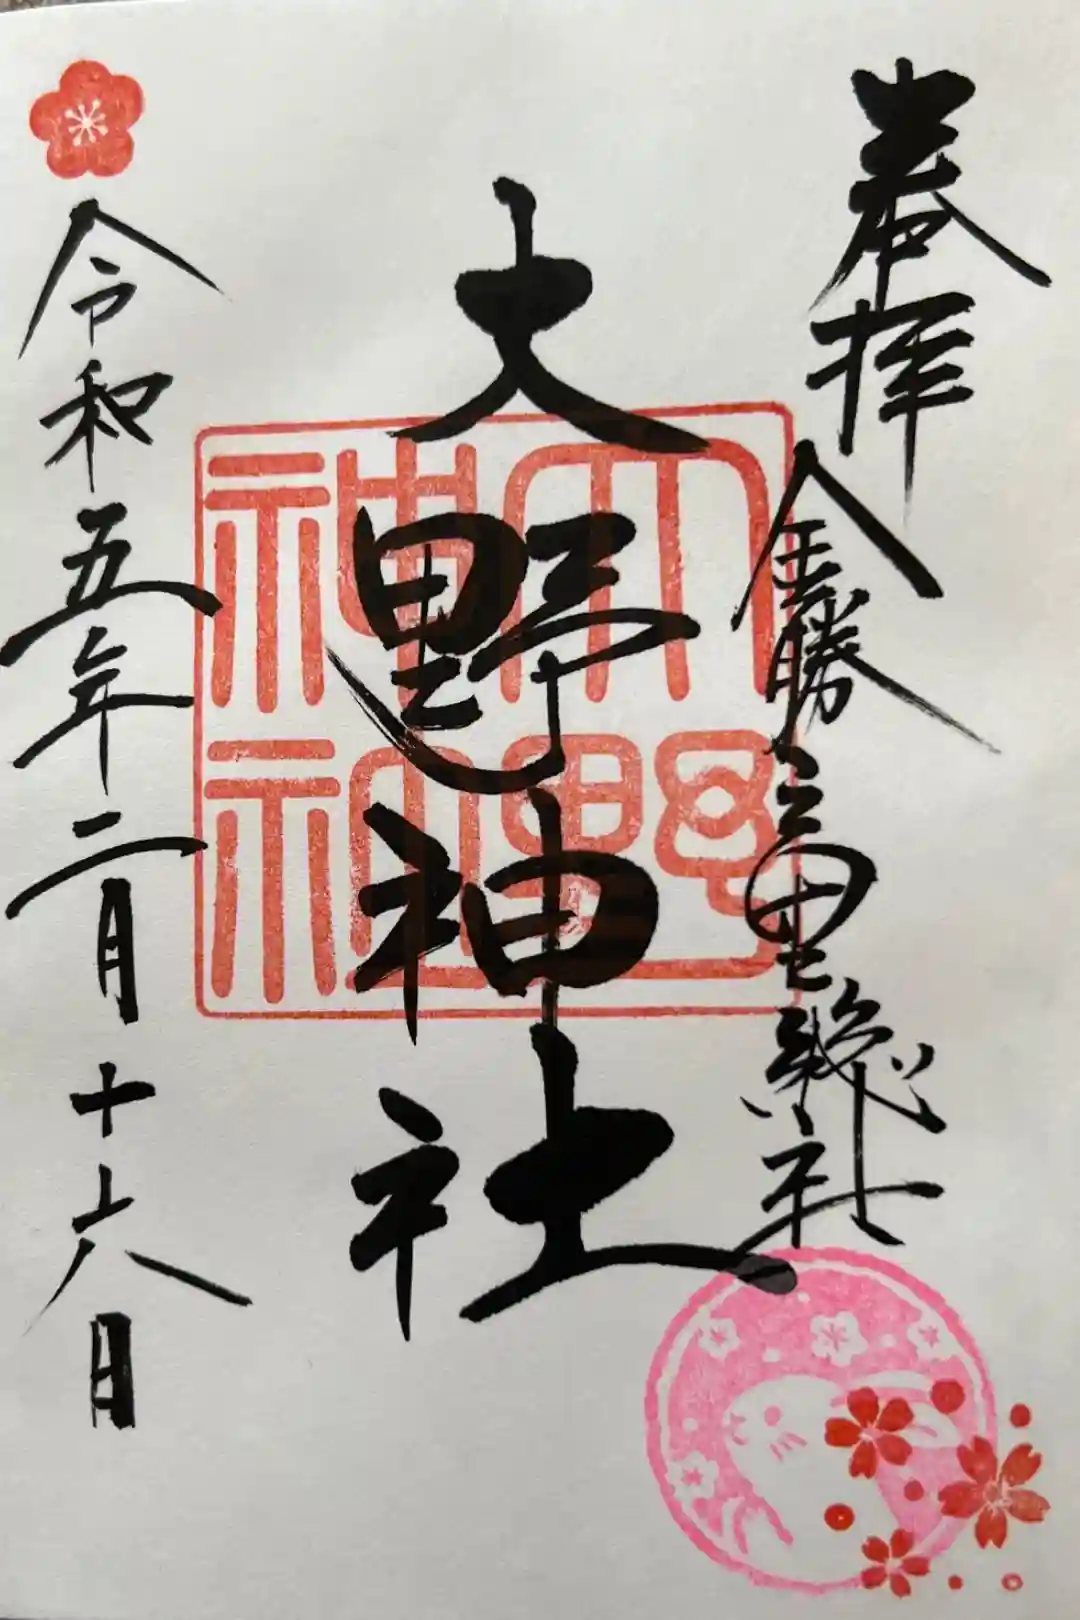 奉拝
金勝 里總社
大野神社
大野
神社
令和五年二月十六日